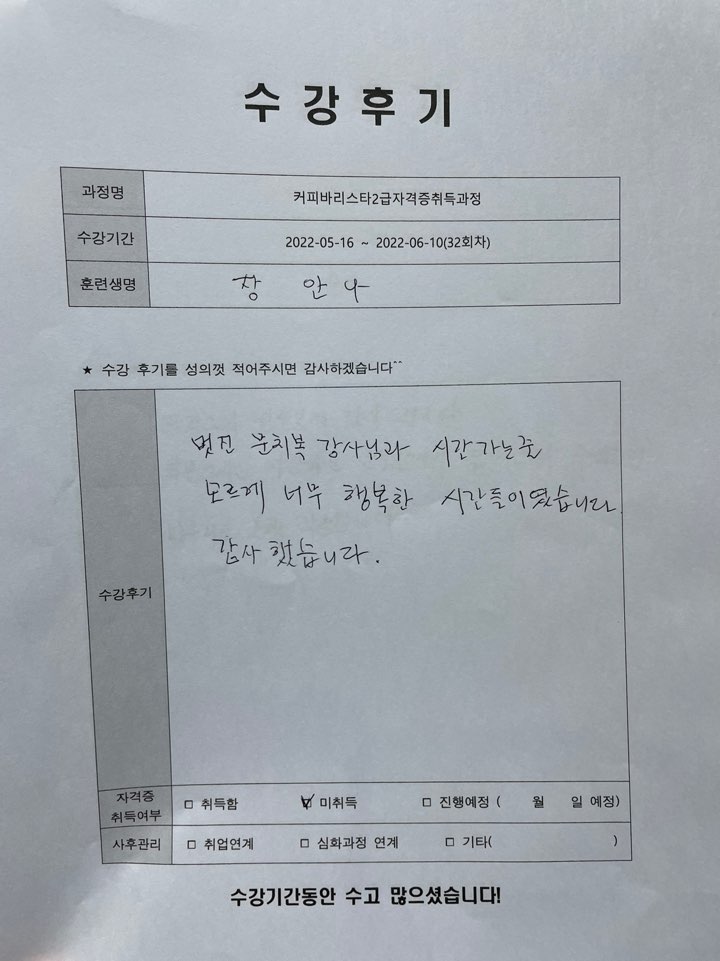 수강후기
과정명 커피바리스타2급자격증취득과정
수강기간 2022-05-16 ~ 2022-06-10(32회차)
훈련생명 장 안나
★ 수강 후기를 성의껏 적어주시면 감사하겠습니다^^
멋진 문치복 강사님과 시간가는줄
모르게 너무 행복한 시간들이였습니다.
감사했습니다.
수강후기
자격증
취득여부 □ 취득함 ☑ 미취득 □ 진행예정 ( 월 일 예정)
사후관리 □ 취업연계 □ 심화과정 연계 □ 기타( )
수강기간동안 수고 많으셨습니다!